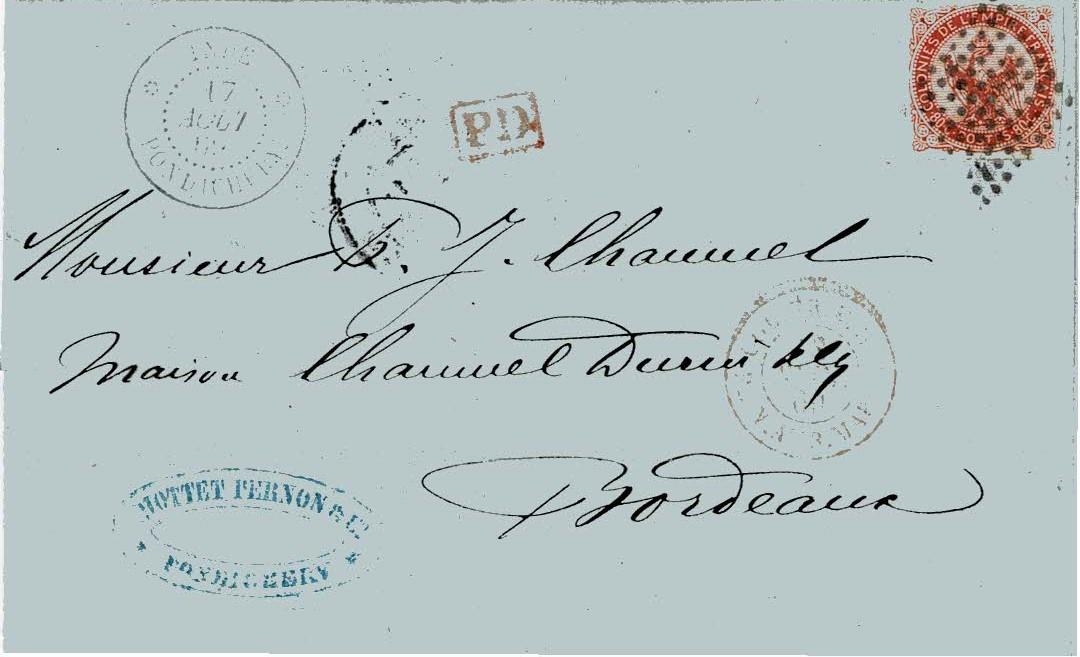 INDE
17
AOUT
PONDICHERY
P.D
COLONIES DE L'EMPIRE FRANÇAIS
80c POSTES 80c
Monsieur J. Chaumel
maison Chaumel Durin
Bordeaux
MOTTET PERNON & Cie
PONDICHERY